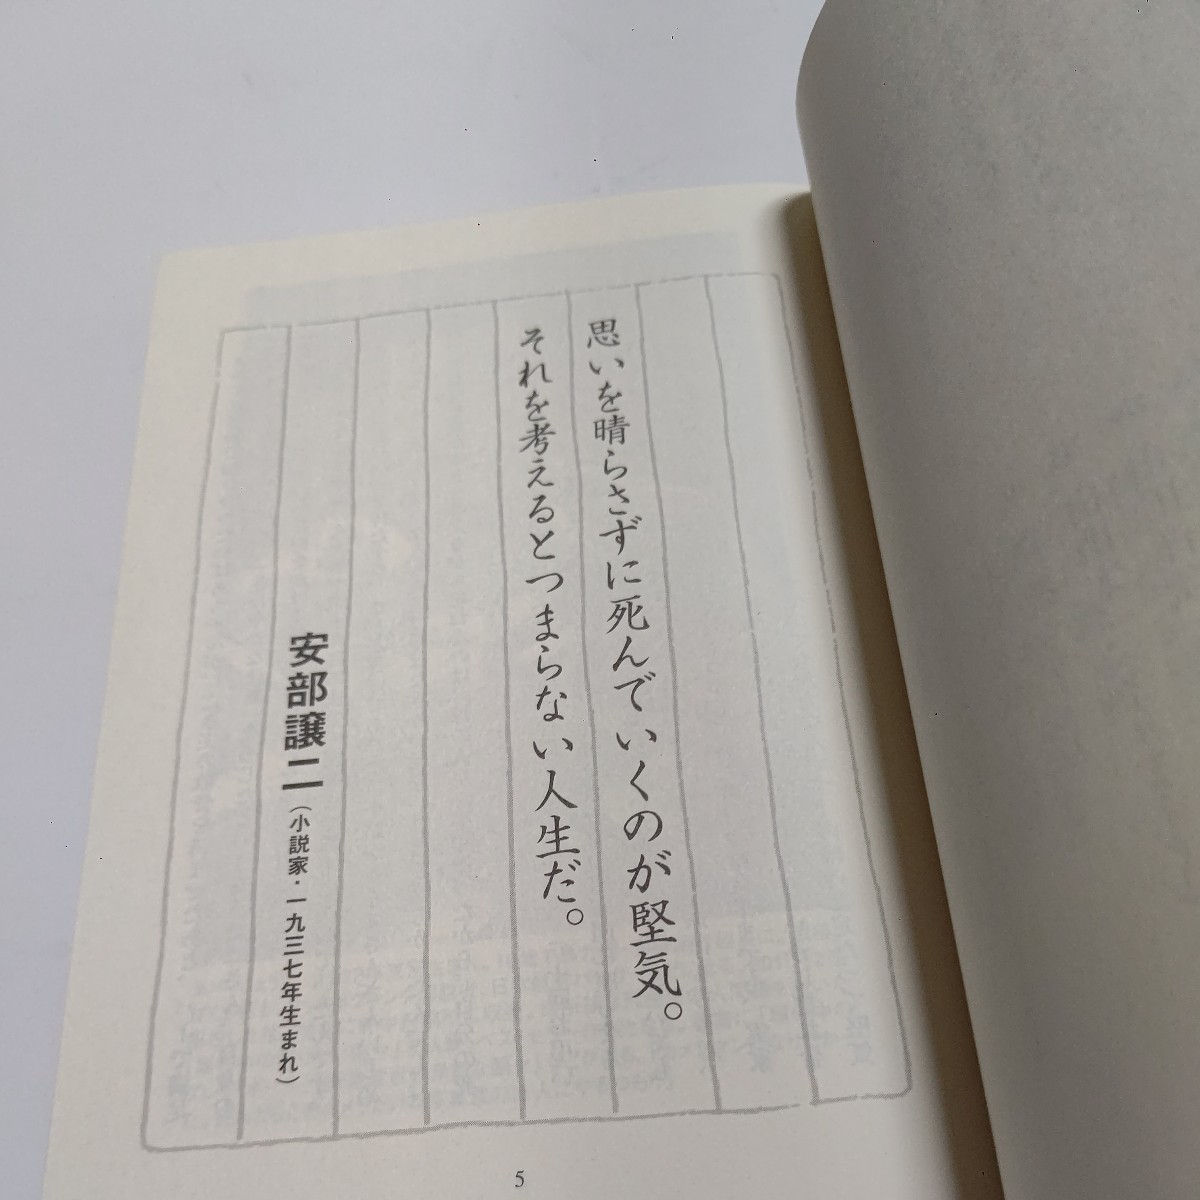 思いを晴らさずに死んでいくのが堅気。
それを考えるとつまらない人生だ。
安部譲二（小説家・一九三七年生まれ）
5